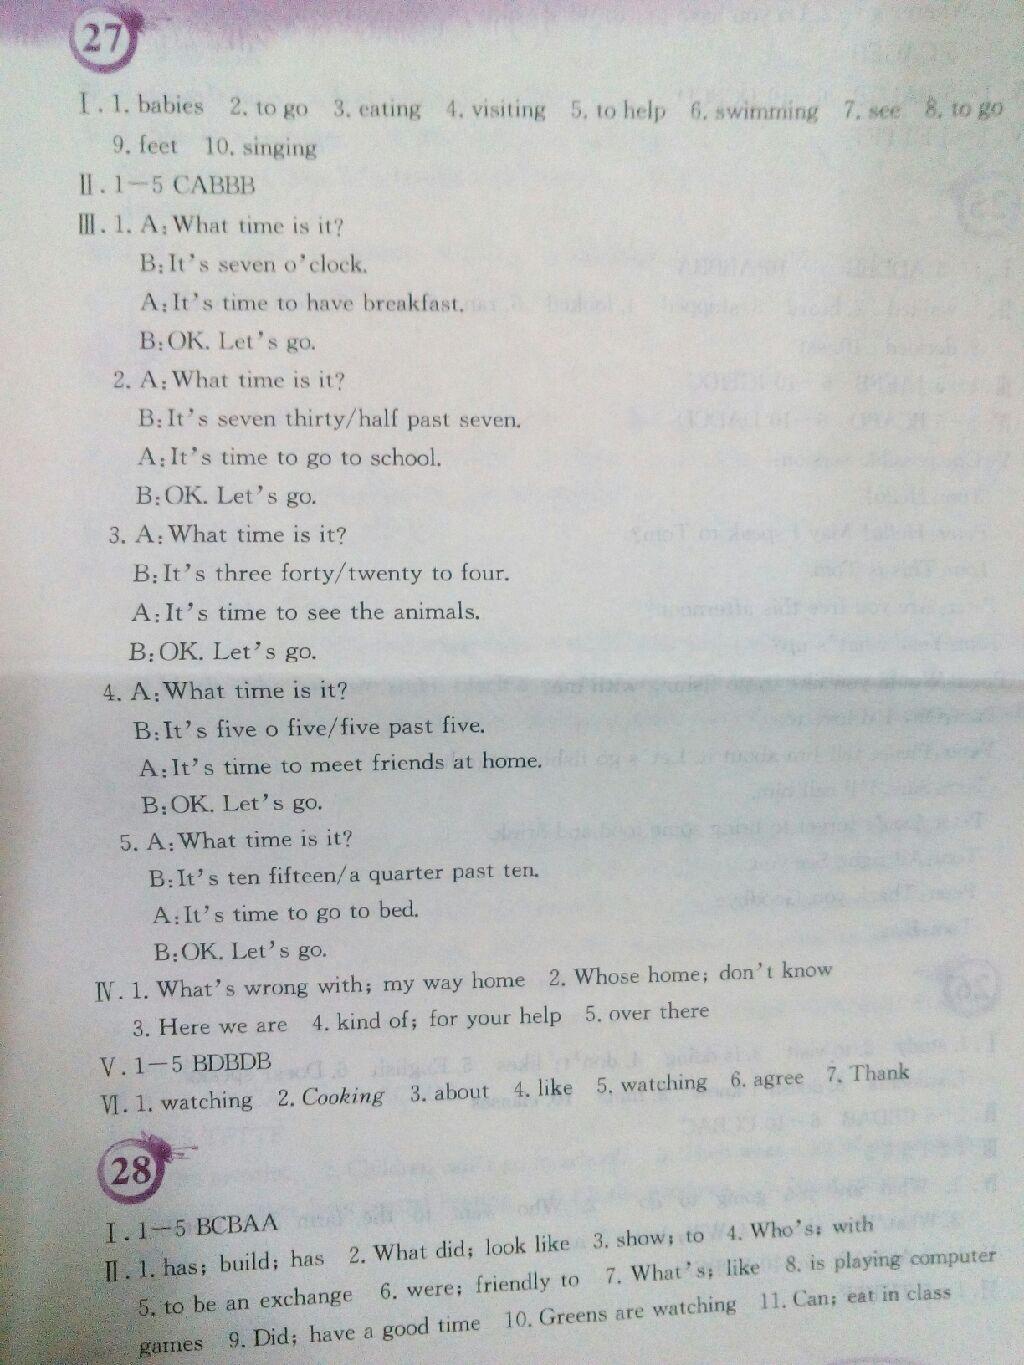 27
Ⅰ. 1. babies 2. to go 3. eating 4. visiting 5. to help 6. swimming 7. see 8. to go
9. feet 10. singing
Ⅱ. 1—5 CABBB
Ⅲ. 1. A: What time is it?
B: It's seven o'clock.
A: It's time to have breakfast.
B: OK. Let's go.
2. A: What time is it?
B: It's seven thirty/half past seven.
A: It's time to go to school.
B: OK. Let's go.
3. A: What time is it?
B: It's three forty/twenty to four.
A: It's time to see the animals.
B: OK. Let's go.
4. A: What time is it?
B: It's five o five/five past five.
A: It's time to meet friends at home.
B: OK. Let's go.
5. A: What time is it?
B: It's ten fifteen/a quarter past ten.
A: It's time to go to bed.
B: OK. Let's go.
Ⅳ. 1. What's wrong with; my way home 2. Whose home; don't know
3. Here we are 4. kind of; for your help 5. over there
Ⅴ. 1—5 BDBDB
Ⅵ. 1. watching 2. Cooking 3. about 4. like 5. watching 6. agree 7. Thank
28
Ⅰ. 1—5 BCBAA
Ⅱ. 1. has; build; has 2. What did; look like 3. show; to 4. Who's; with
5. to be an exchange 6. were; friendly to 7. What's; like 8. is playing computer
games 9. Did; have a good time 10. Greens are watching 11. Can; eat in class